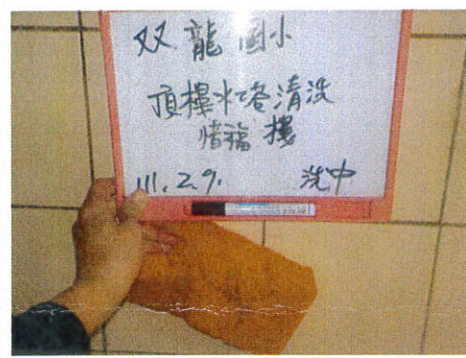 双龍國小
頂樓水塔清洗
惜福樓
111.2.9. 洗中